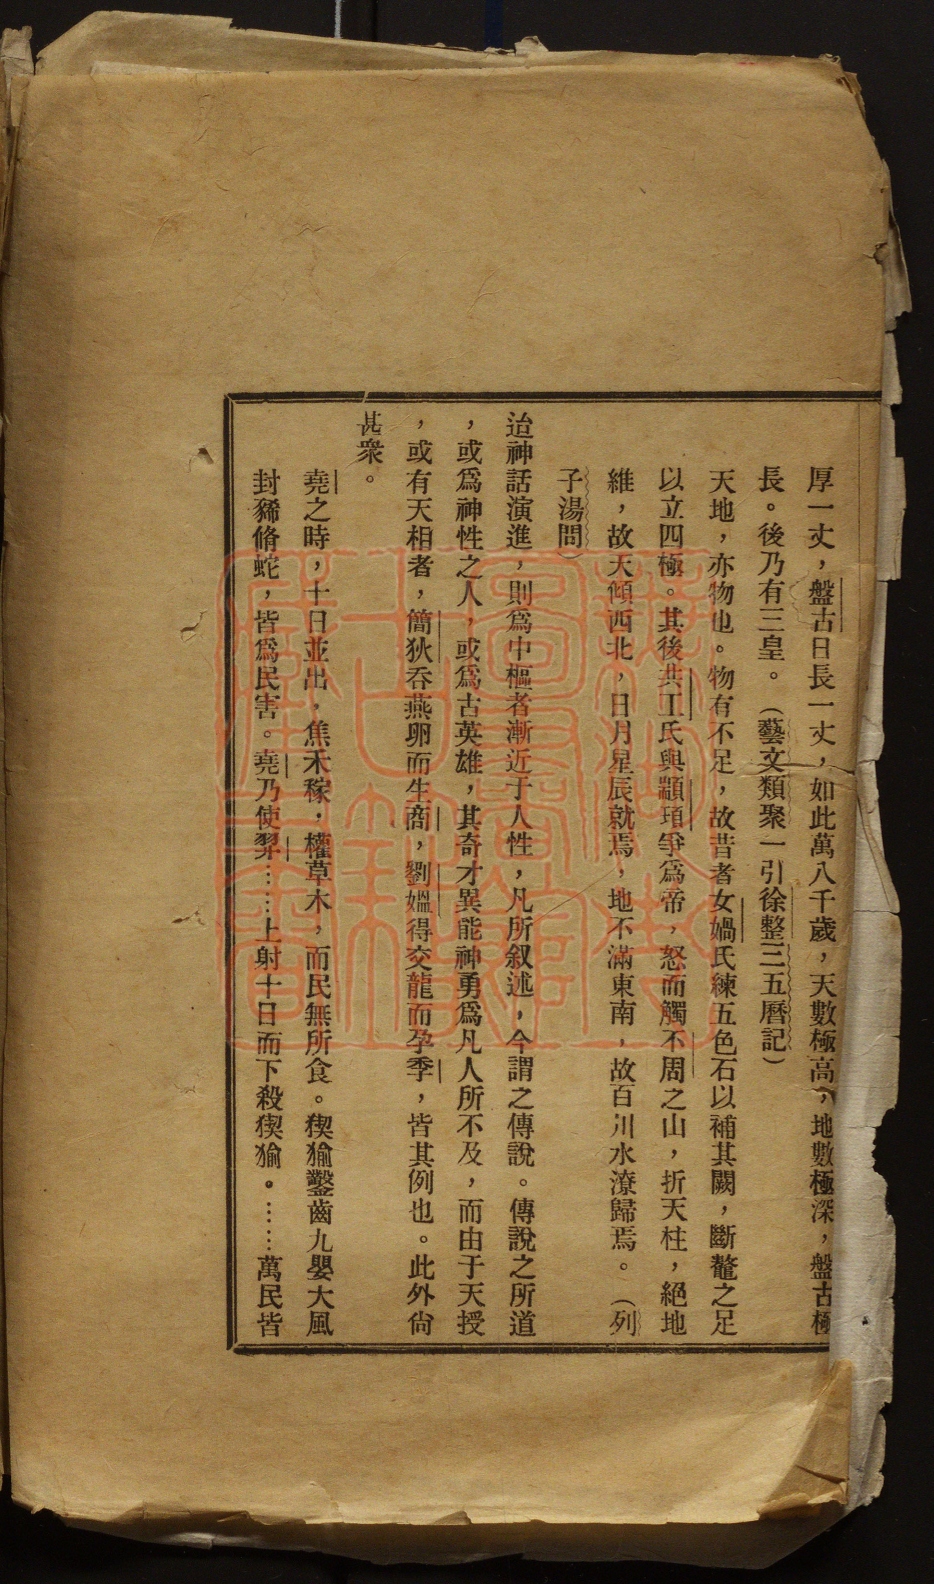 厚一丈，盤古日長一丈，如此萬八千歲，天數極高，地數極深，盤古極
長。後乃有三皇。（藝文類聚一引徐整三五曆記）
天地，亦物也。物有不足，故昔者女媧氏練五色石以補其闕，斷鼇之足
以立四極。其後共工氏與顓頊爭爲帝，怒而觸不周之山，折天柱，絕地
維，故天傾西北，日月星辰就焉，地不滿東南，故百川水潦歸焉。（列
子湯問）
迨神話演進，則爲中樞者漸近于人性，凡所叙述，今謂之傳說。傳說之所道
，或爲神性之人，或爲古英雄，其奇才異能神勇爲凡人所不及，而由于天授
，或有天相者，簡狄吞燕卵而生商，劉媼得交龍而孕季，皆其例也。此外尙
甚衆。
堯之時，十日並出，焦禾稼，權草木，而民無所食。猰貐鑿齒九嬰大風
封豨脩蛇，皆爲民害。堯乃使羿……上射十日而下殺猰貐。……萬民皆